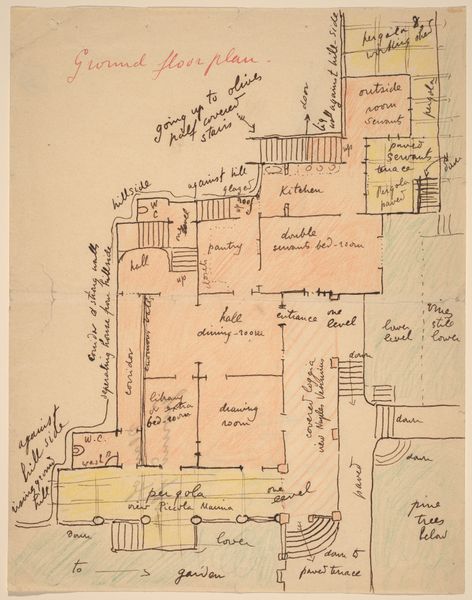 Ground floor plan.
going up to olives
half covered
stairs
door
wall against hill side
pergola &
working shed
pergola
outside
room
servant
up
paved
servants
terrace
pergola
paved
down
against hill
glazed
roof
up
Kitchen
hillside
W
C
hall
up
pantry
double
servants bed-room
corridor & string walls
separating house from hillside
corridor
enormous walls
hall
dining-room
entrance
one
level
lower
level
vine
still
lower
covered loggia
view Naples Vesuvius
down
library
& extra
bed-room
drawing
room
down
down
against
hill side
rising ground
hills
W.C.
wash
pergola
view Piccola Marina
one
level
paved
pine
trees
below
down
lower
down to
paved terrace
to → garden